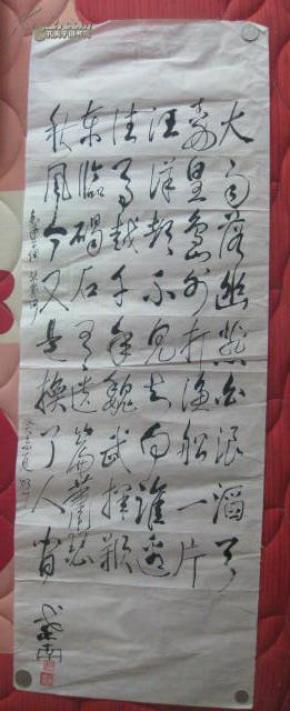 大雨落幽燕白浪滔天
秦皇岛外打渔船一片
汪洋都不见知向谁边
往事越千年魏武挥鞭
东临碣石有遗篇萧瑟
秋风今又是换了人间
孔夫子旧书网